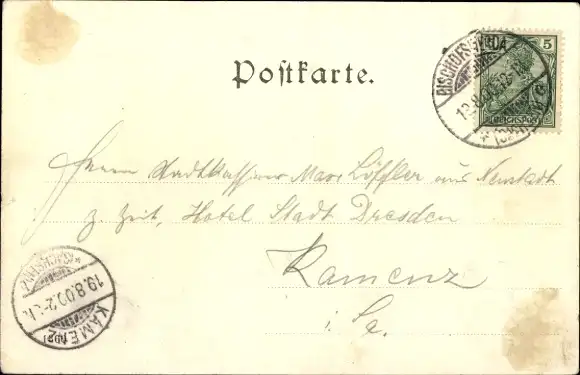 Postkarte.
BISCHOFSWERDA
5
REICHSPOST
Herrn Stadtkassierer Max Löffler aus Neustadt
z. Zeit, Hotel Stadt Dresden
Kamenz
i. Sa.
(SACHSEN)
19.8.00.
KAMENZ